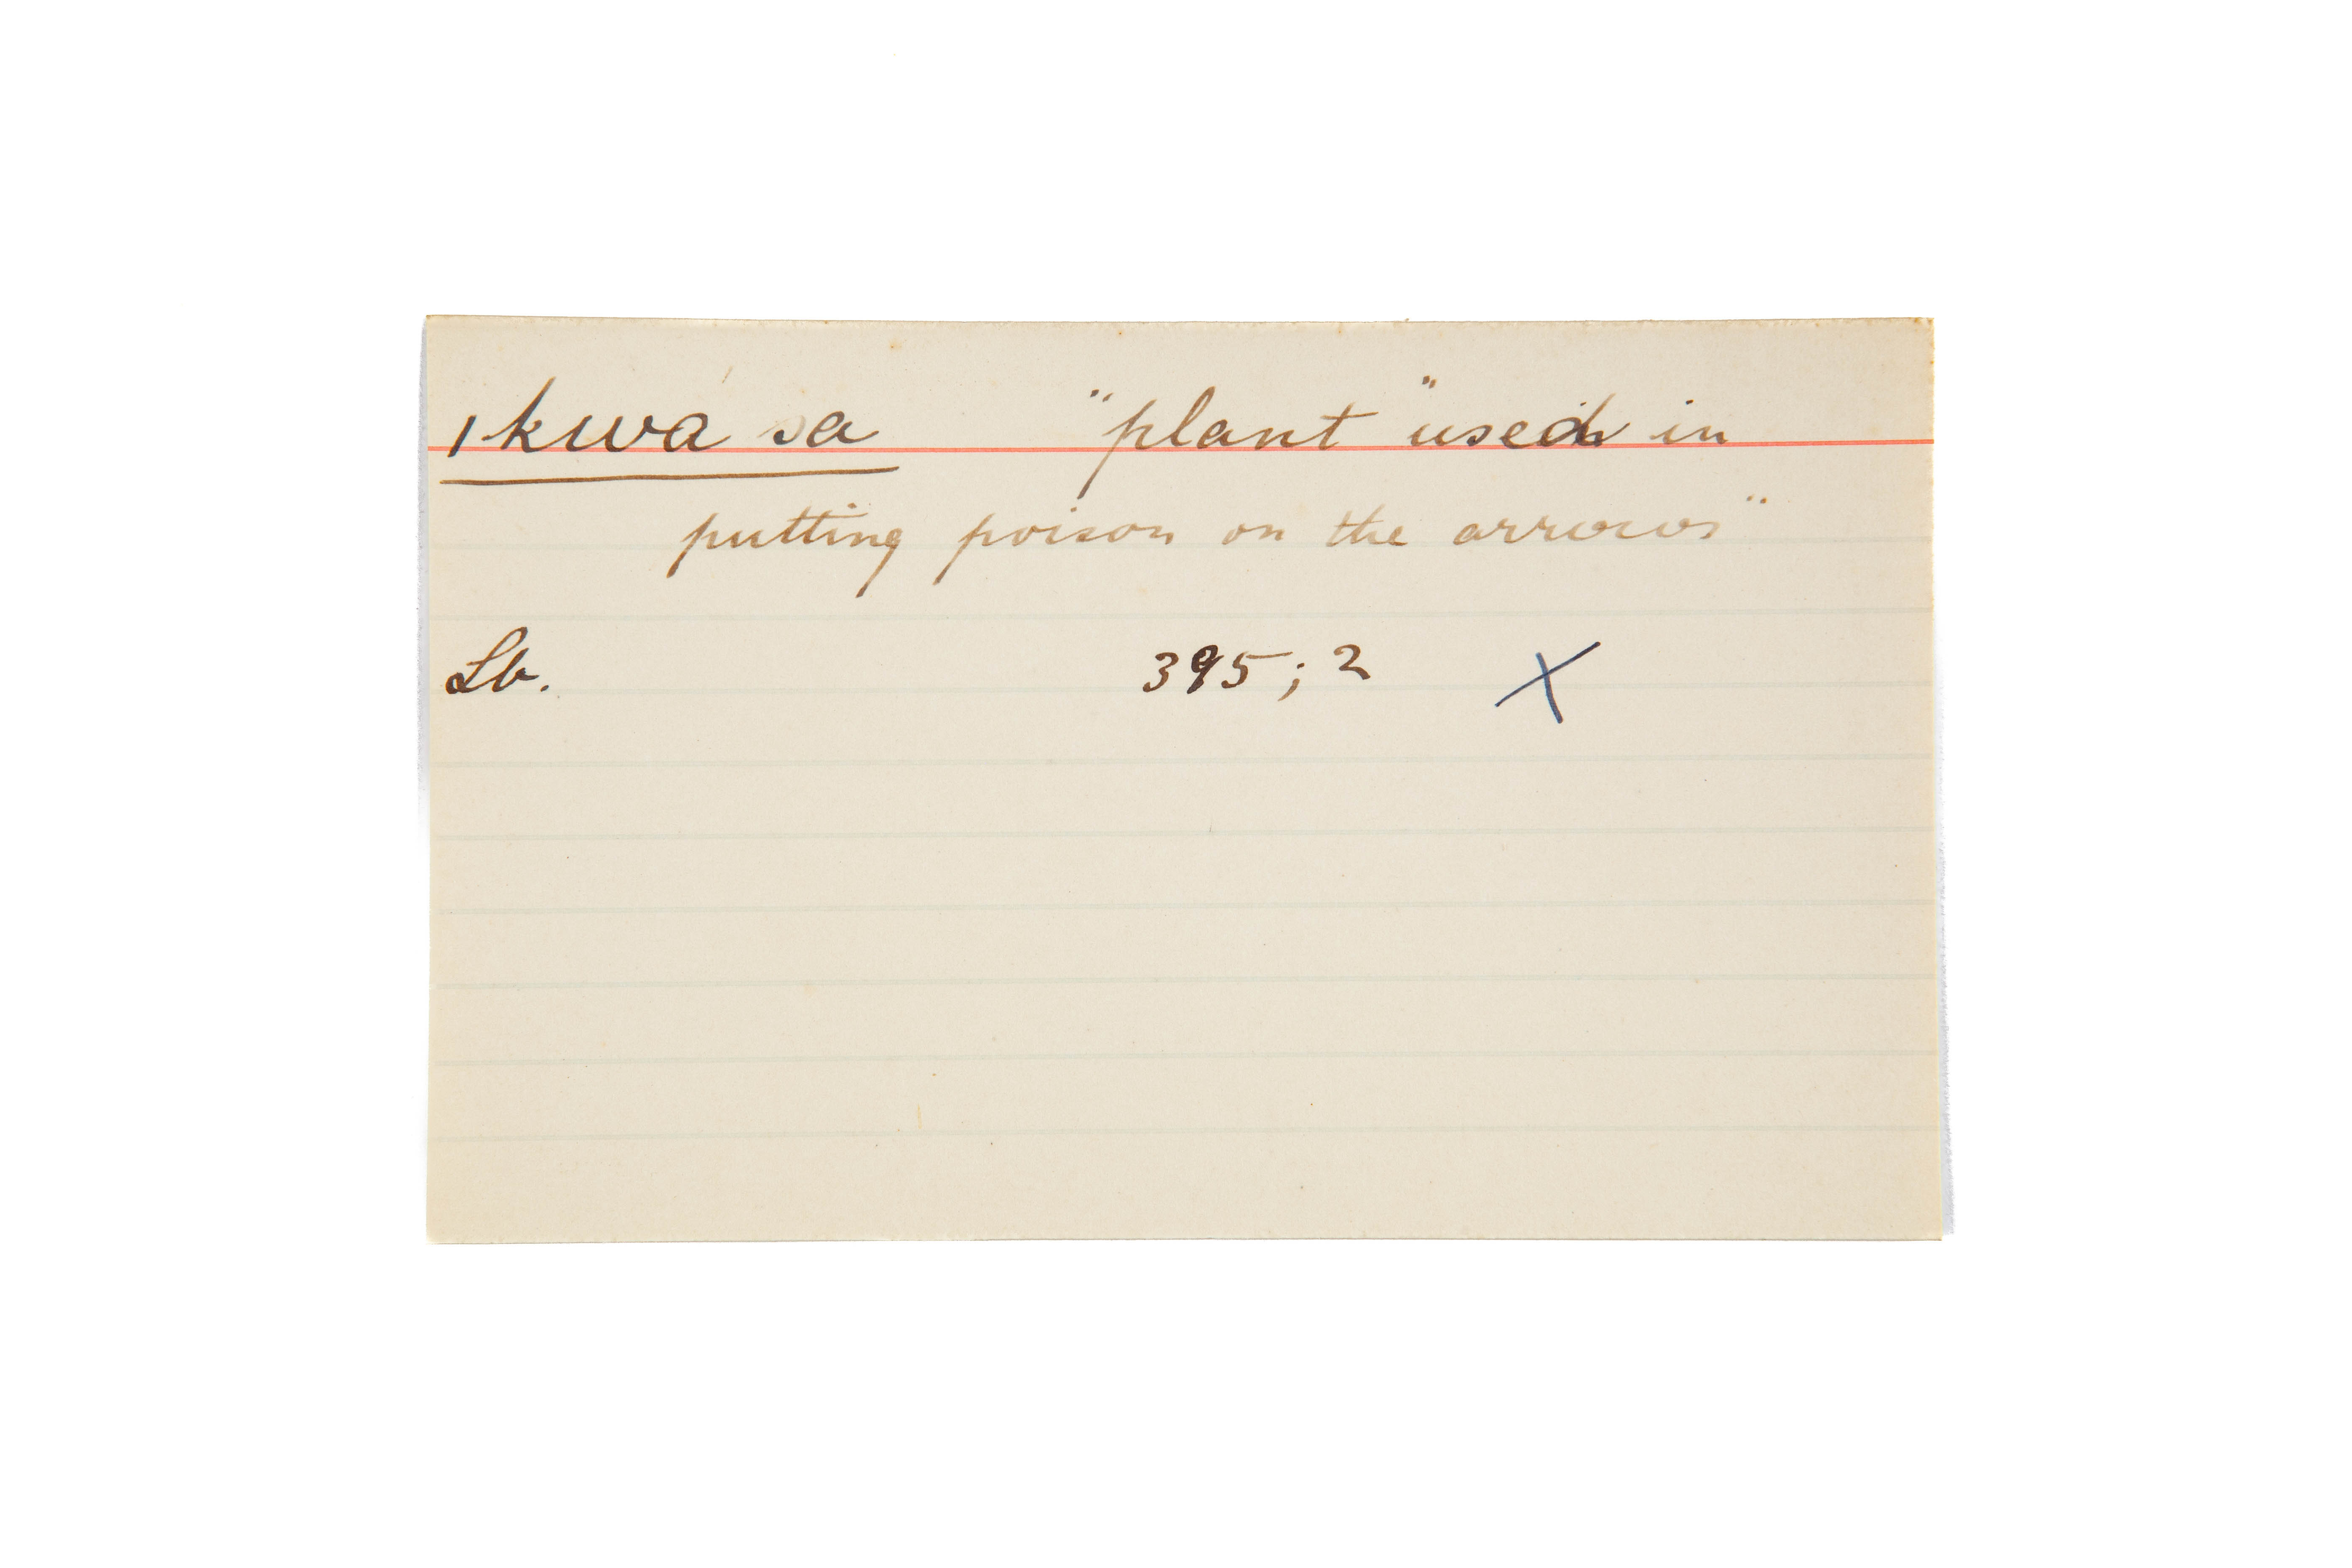 ı kwá sa "plant" used in
putting poison on the arrows"
Lb. 395; 2 X